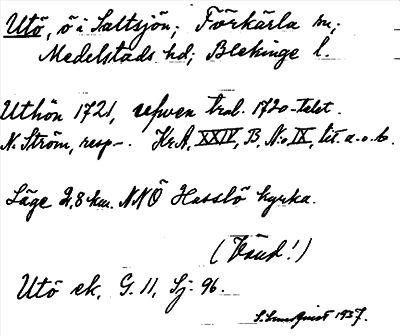 Utö, ö i Saltsjön; Förkärla sn;
Medelstads hd; Blekinge l.
Uthön 1721, refven trol. 1720-talet.
N. Ström, resp-. Kr.A, XXIV, B, No IX, lit. a. o. b.
Läge 2,8 km. NNÖ Hasslö kyrka.
(Vänd!)
Utö ek, G. 11, Sj. 96.
S. Lundquist 1937.